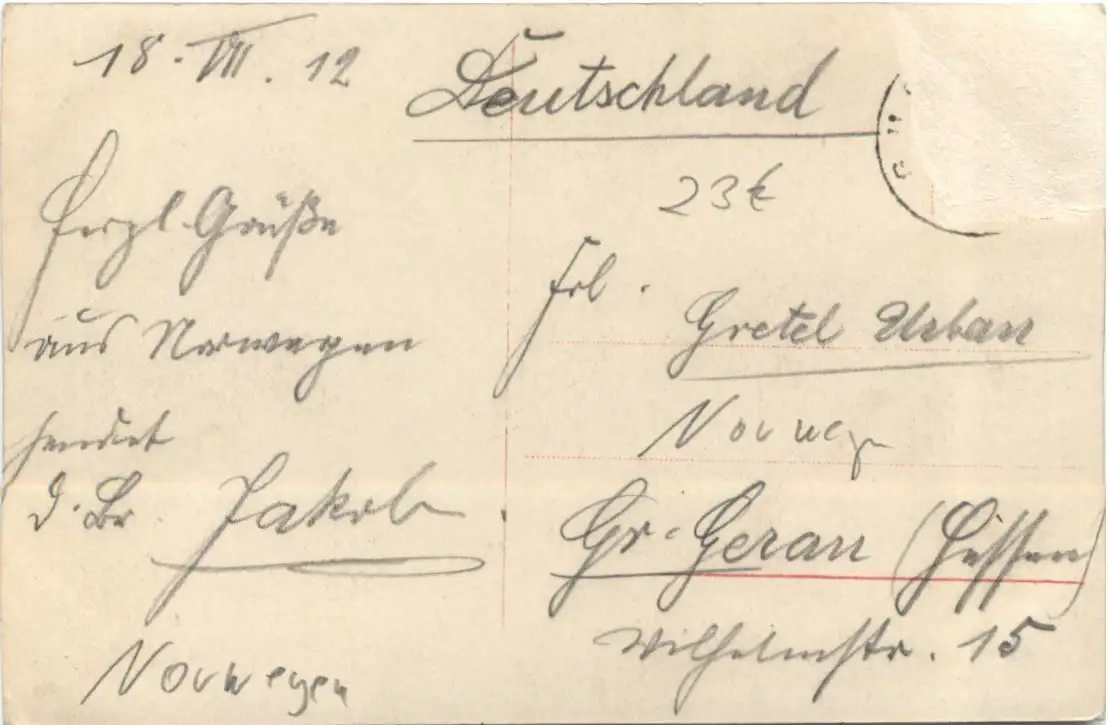 18. VII. 12
Herzl. Grüße
aus Norwegen
sendet
d. Br. Jakob
Norwegen
Deutschland
23€
Frl.
Gretel Urban
Norwege
Gr-Gerau (Hessen)
Wilhelmstr. 15